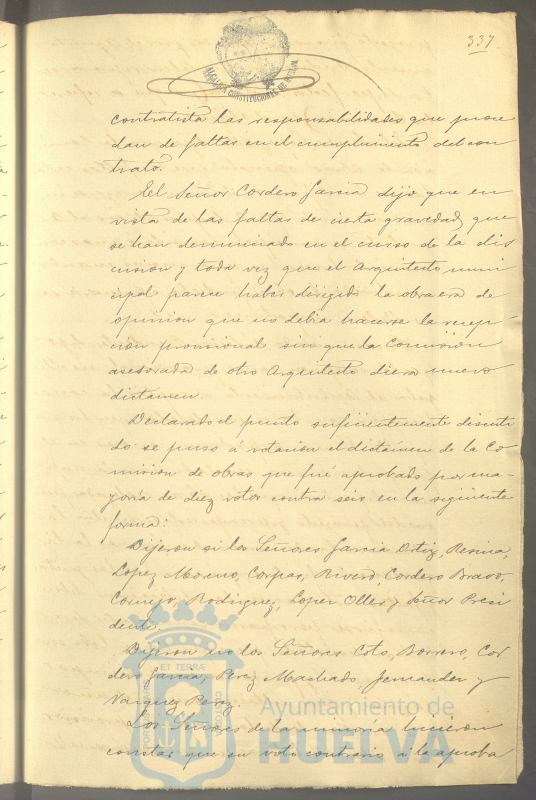 337.
ALCALDIA CONSTITUCIONAL DE HUELVA
contratista las responsabilidades que proce
dan de faltas en el cumplimiento del con
trato.
El Señor Cordero Garcia dijo que en
vista de las faltas de cierta gravedad, que
se han denunciado en el curso de la dis
cusion y toda vez que el Arquitecto muni
cipal parece haber dirigido la obra era de
opinion que no debia hacerse la recep
cion provisional sin que la Comision
asesorada de otro Arquitecto diera nuevo
dictamen.
Declarado el punto suficientemente discuti
do se puso á votacion el dictámen de la Co
mision de obras que fué aprobado por ma-
yoria de diez votos contra seis en la siguiente
forma:
Dijeron si los Señores Garcia Ortiz, Resina,
Lopez Moreno, Corpas, Rivero, Cordero Bravo,
Cornejo, Rodriguez, Lopez Olles y Señor Presi
dente.
Dijeron no los Señores Coto, Borrero, Cor
dero Garcia, Perez Machado, Fernandez y
Vazquez Perez.
Los Señores de la minoría hicieron
constar que su voto contrario á la aproba
ET TERRÆ
PORTUS MARIS
Ayuntamiento de
HUELVA